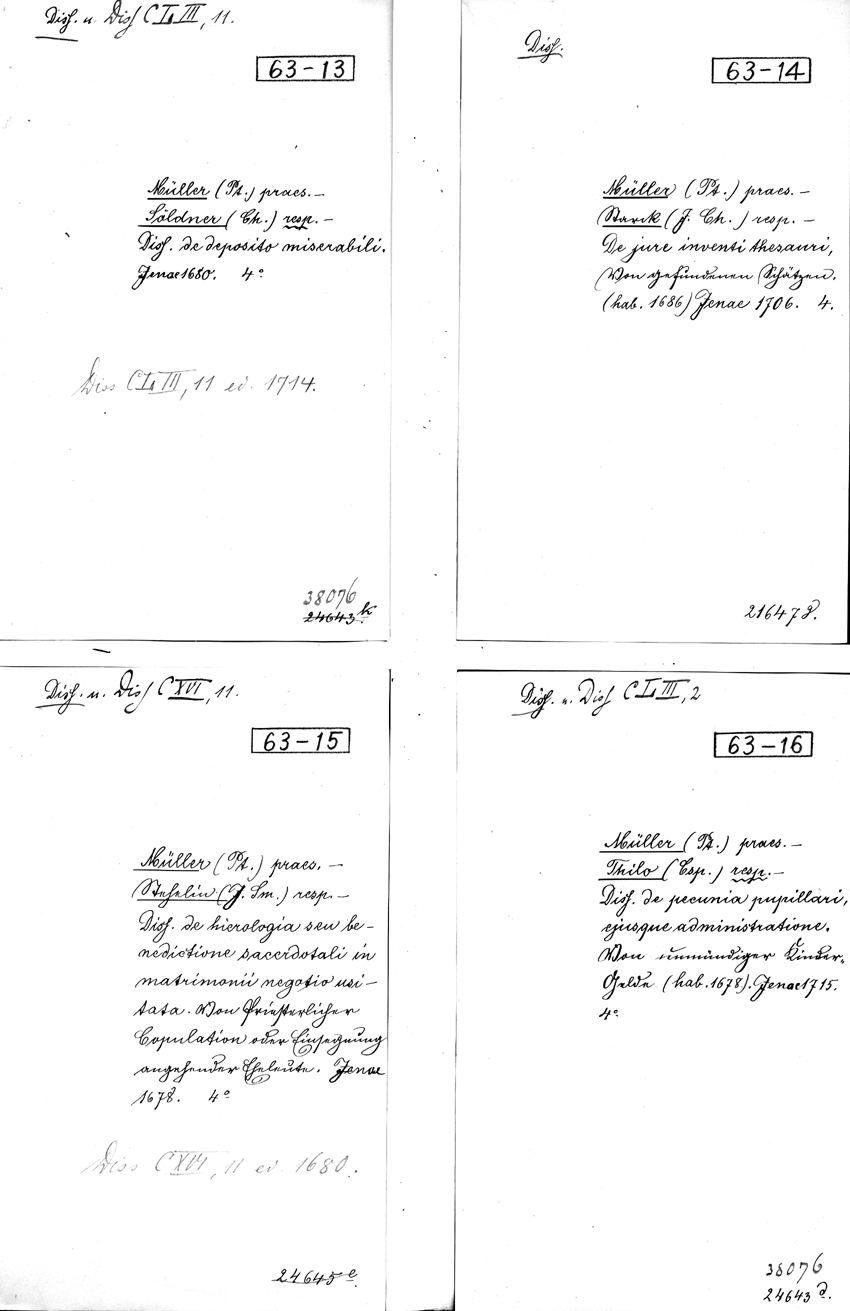 Diss. u. Diss C I, III, 11.
63-13
Müller (Pt.) praes. –
Söldner (Ch.) resp. –
Diss. de deposito miserabili.
Jenae 1680. 4°
Diss C I, III, 11 ed. 1714.
38076
24643 k.
Diss.
63-14
Müller (Pt.) praes. –
Starck (J. Ch.) resp. –
De jure inventi thesauri,
Von gefundenen Schätzen.
(hab. 1686) Jenae 1706. 4.
Diss. u. Diss C XVI, 11.
63-15
Müller (Pt.) praes. –
Stehelin (J. Sm.) resp. –
Diss. de hierologia seu be-
nedictione sacerdotali in
matrimonii negotio usi-
tata. Von Priesterlicher
Copulation oder Einsegnung
angehender Eheleute. Jenae
1678. 4°
Diss C XVI, 11 ed. 1680.
24645 e.
Diss. u. Diss C I, III, 2
63-16
Müller (Pt.) praes. –
Thilo (Csp.) resp. –
Diss. de pecunia pupillari,
ejusque administratione.
Von unmündiger Kinder-
Gelde (hab. 1678). Jenae 1715.
4°
38076
24643 d.